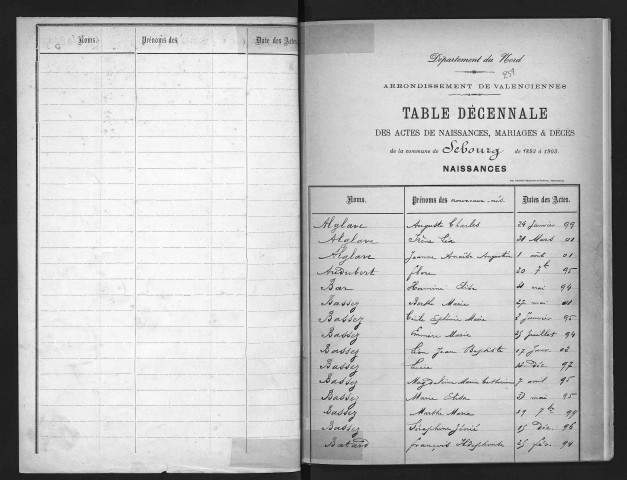 Noms. Prénoms des Date des Actes
Département du Nord
251
ARRONDISSEMENT DE VALENCIENNES
TABLE DÉCENNALE
DES ACTES DE NAISSANCES, MARIAGES & DÉCÈS
de la commune de Sebourg de 1893 à 1903.
NAISSANCES
Noms. Prénoms des nouveaux-nés. Dates des Actes.
Alglave Auguste Charles 24 Janvier 99
Alglave Irène Léa 28 Mars 01
Alglave Jeanne Augustine 1 août 01
Audubert Flore 20 7b 95
Bar Hermine Elisa 4 mai 94
Bassez Berthe Marie 27 mai 01
Bassez Marie 2 Janvier 95
Bassez Marie 25 Juillet 94
Bassez Léon Jean Baptiste 17 Janv. 02
Bassez Lucie Déc. 97
Bassez Marie Catherine 7 avril 95
Bassez Marie Elisa 21 mai 95
Bassez Marthe Marie 19 7b 99
Bassez 15 Déc. 96
Batard François Ildephonse 25 fév. 94